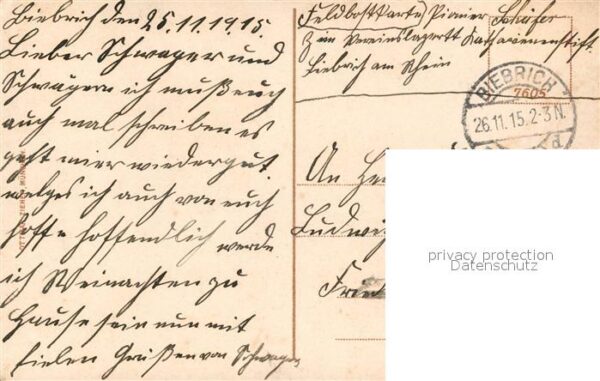 Biebrich den 25.11.1915.
Lieber Schwager und
Schwägern ich muß euch
auch mal schreiben es
geht mier wieder gut.
welges ich auch von euch
hoffe hoffendlich werde
ich Weinachten zu
Hause sein nun mit
fielen Grüßen von Schwager
Feldpostkarte Pionier Schäfer
Z im Vereinslazarett Katharinenstift.
Biebrich am Rhein
7605
BIEBRICH
26.11.15.2-3N.
An
Ludwig
privacy protection
Datenschutz